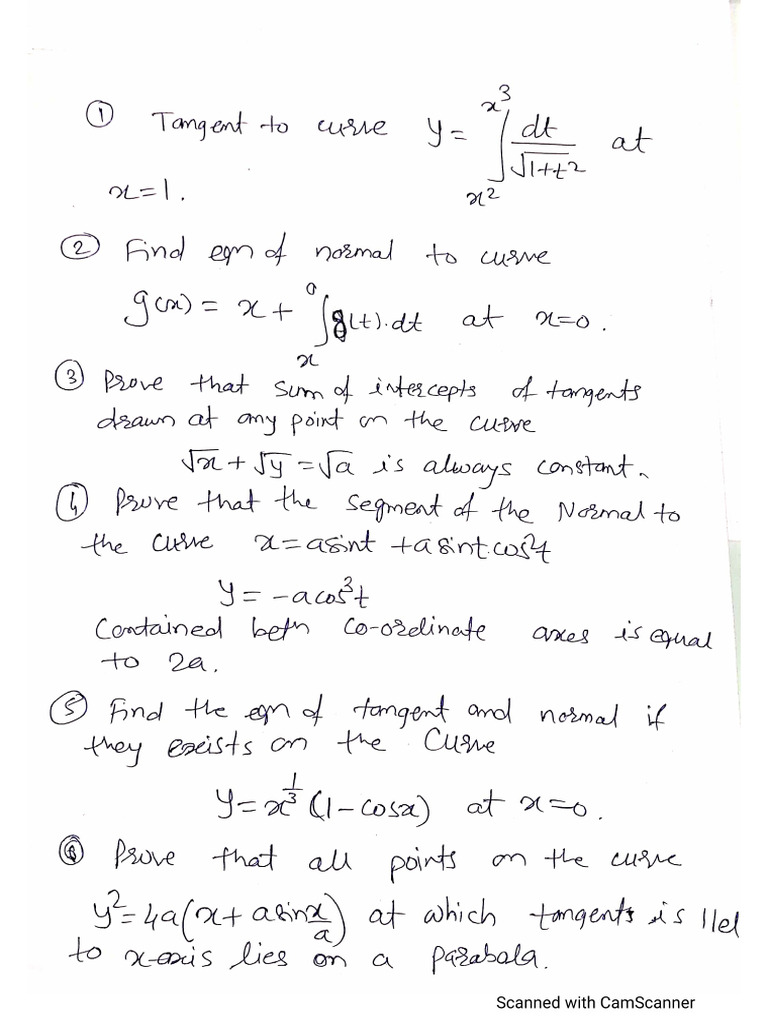 ① Tangent to curve y = ∫_{x²}^{x³} dt/√(1+t²) at
x=1.
② Find eqn of normal to curve
g(x) = x + ∫_{x}^{0} g(t).dt at x=0.
③ Prove that sum of intercepts of tangents
drawn at any point on the curve
√x + √y = √a is always constant.
④ Prove that the segment of the Normal to
the curve x = asint + asint.cos²t
y = -acos³t
Contained betn co-ordinate axes is equal
to 2a.
⑤ Find the eqn of tangent and normal if
they exists on the Curve
y = x^{1/3} (1-cosx) at x=0.
⑥ Prove that all points on the curve
y² = 4a(x + asin x/a) at which tangents is llel
to x-axis lies on a parabola.
Scanned with CamScanner